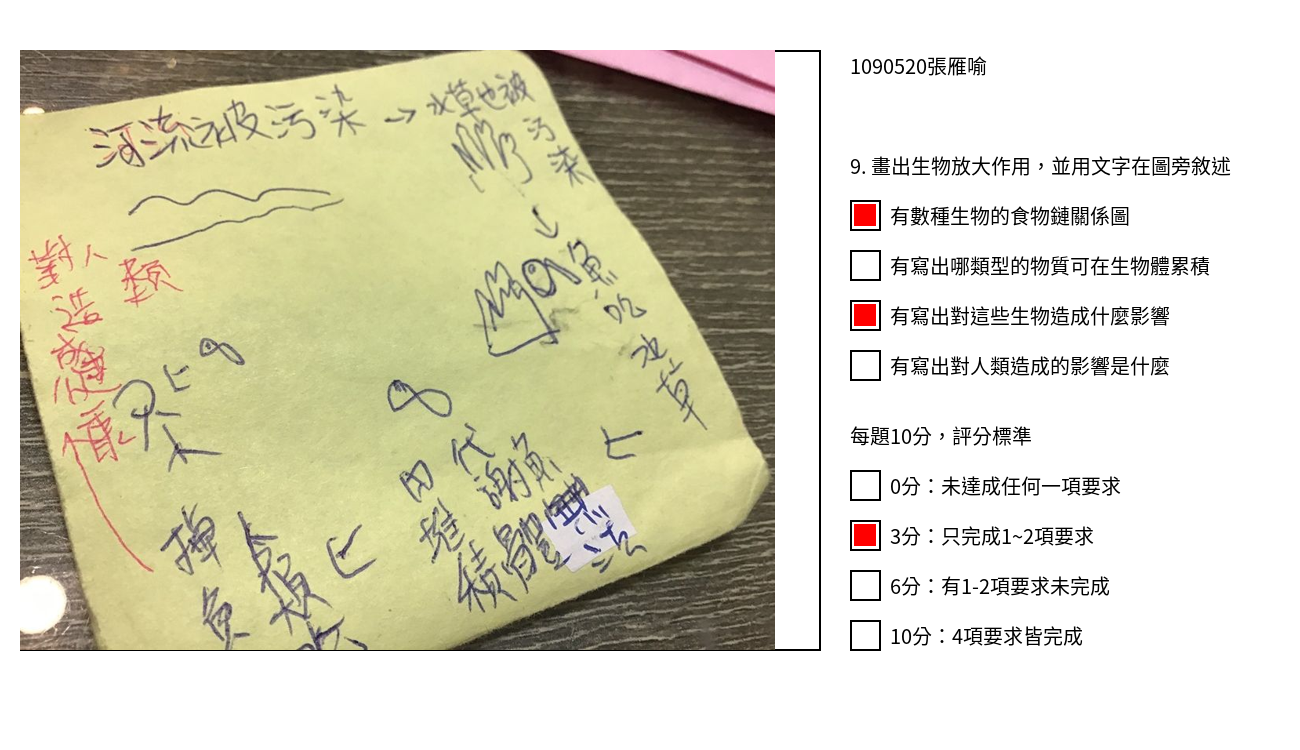 河流被污染 → 水草也被
污染
魚吃
水草
魚體無法
代謝
堆積
人類
對人類
造成
1090520張雁喻
9. 畫出生物放大作用，並用文字在圖旁敘述
有數種生物的食物鏈關係圖
有寫出哪類型的物質可在生物體累積
有寫出對這些生物造成什麼影響
有寫出對人類造成的影響是什麼
每題10分，評分標準
0分：未達成任何一項要求
3分：只完成1~2項要求
6分：有1-2項要求未完成
10分：4項要求皆完成